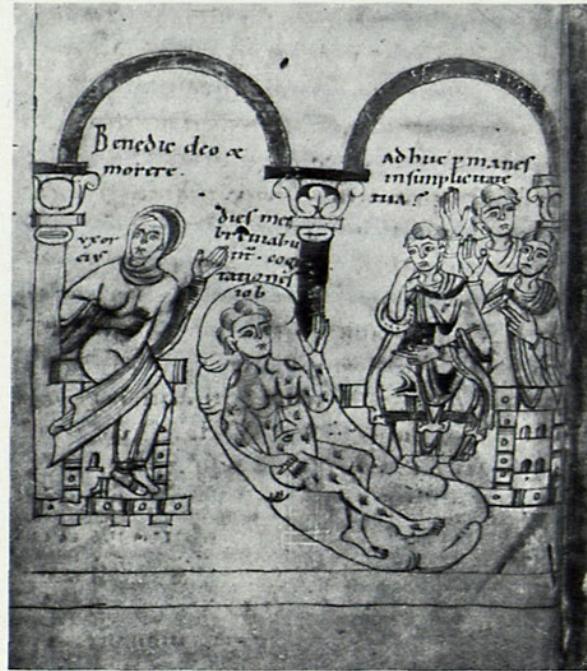 Benedic deo &
morere.
adhuc pmanes
insimplicitate
tua?
vxor
eius
dies mei
breviabu
nt. cogi
tationes
iob